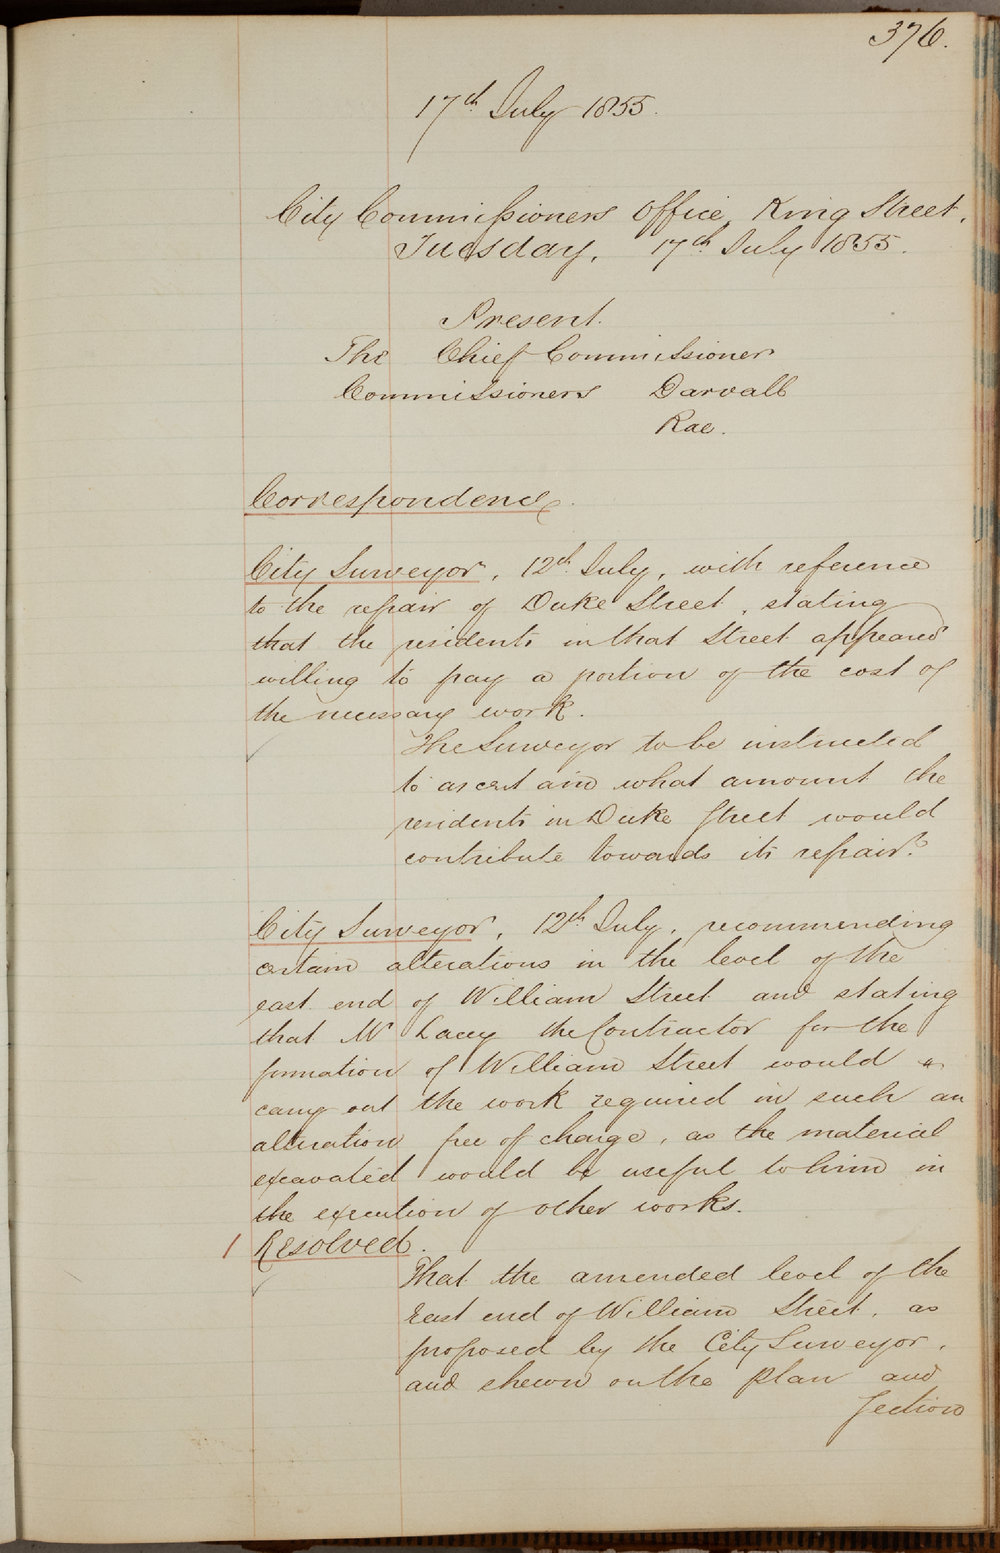 376.
17th July 1855.
City Commissioners Office, King Street.
Tuesday, 17th July 1855.
Present.
The Chief Commissioner
Commissioners Darvall
Rae.
Correspondence.
City Surveyor, 12th July, with reference
to the repair of Duke Street, stating
that the residents in that Street appeared
willing to pay a portion of the cost of
the necessary work.
The Surveyor to be instructed
to ascertain what amount the
residents in Duke Street would
contribute towards its repair.
City Surveyor, 12th July, recommending
certain alterations in the level of the
east end of William Street and stating
that Mr Lacey the Contractor for the
formation of William Street would
carry out the work required in such an
alteration free of charge, as the material
excavated would be useful to him in
the execution of other works.
1 Resolved.
That the amended level of the
East end of William Street, as
proposed by the City Surveyor,
and shewn on the plan and
Section